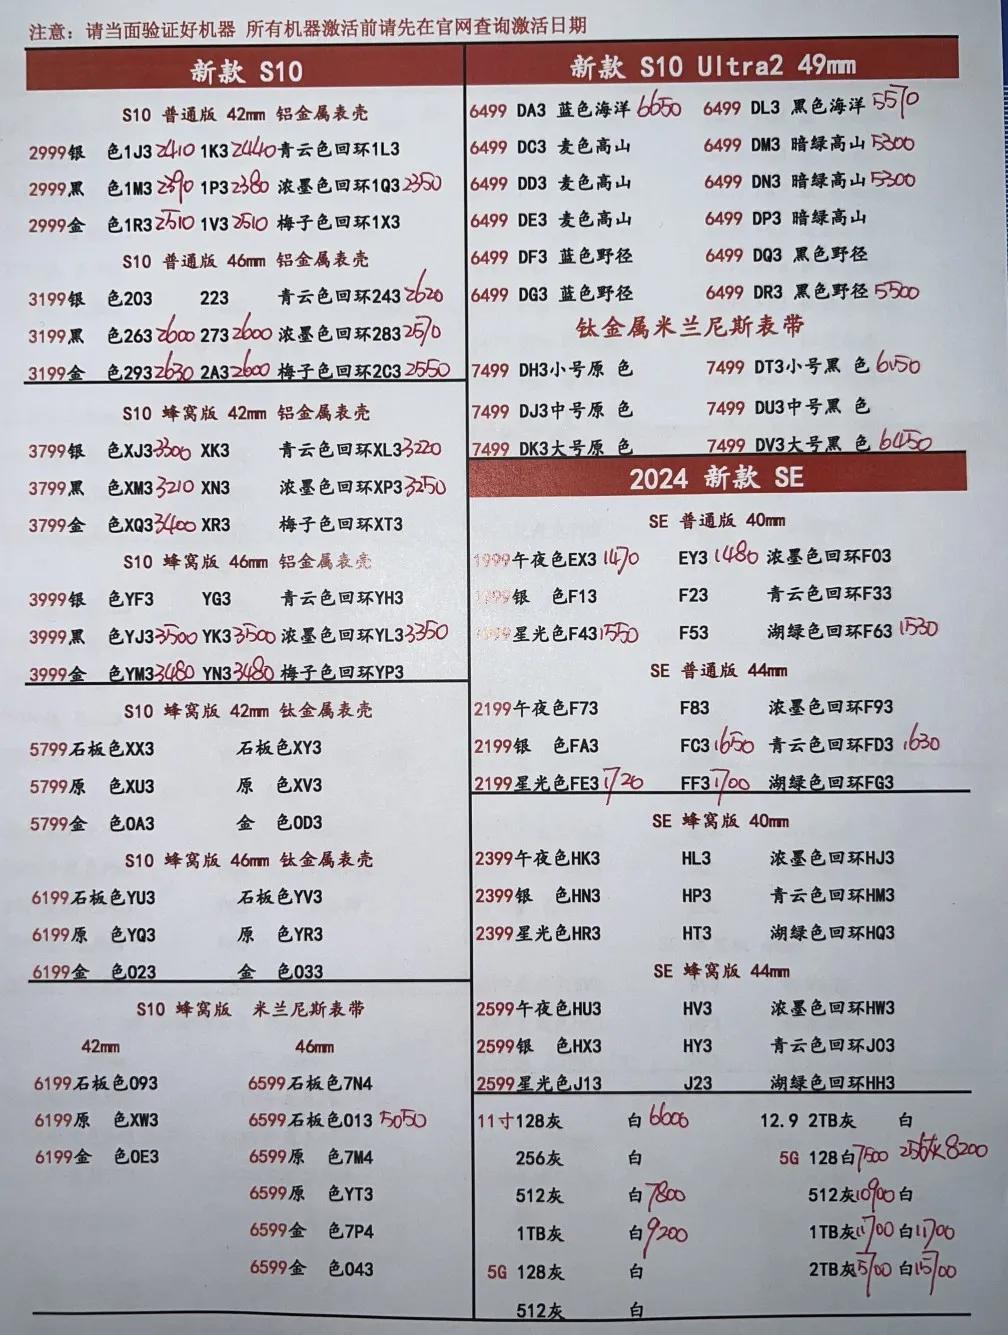 注意：请当面验证好机器 所有机器激活前请先在官网查询激活日期
新款 S10
S10 普通版 42mm 铝金属表壳
2999银 色1J3 2410 1K3 2440 青云色回环1L3
2999黑 色1M3 2390 1P3 2380 浓墨色回环1Q3 2350
2999金 色1R3 2510 1V3 2510 梅子色回环1X3
S10 普通版 46mm 铝金属表壳
3199银 色203 223 青云色回环243 2620
3199黑 色263 2600 273 2600 浓墨色回环283 2570
3199金 色293 2630 2A3 2600 梅子色回环2C3 2550
S10 蜂窝版 42mm 铝金属表壳
3799银 色XJ3 3300 XK3 青云色回环XL3 3220
3799黑 色XM3 3210 XN3 浓墨色回环XP3 3250
3799金 色XQ3 3400 XR3 梅子色回环XT3
S10 蜂窝版 46mm 铝金属表壳
3999银 色YF3 YG3 青云色回环YH3
3999黑 色YJ3 3500 YK3 3500 浓墨色回环YL3 3350
3999金 色YM3 3480 YN3 3480 梅子色回环YP3
S10 蜂窝版 42mm 钛金属表壳
5799石板色XX3 石板色XY3
5799原 色XU3 原 色XV3
5799金 色0A3 金 色0D3
S10 蜂窝版 46mm 钛金属表壳
6199石板色YU3 石板色YV3
6199原 色YQ3 原 色YR3
6199金 色023 金 色033
S10 蜂窝版 米兰尼斯表带
42mm 46mm
6199石板色093 6599石板色7N4
6199原 色XW3 6599石板色013 5050
6199金 色0E3 6599原 色7M4
6599原 色YT3
6599金 色7P4
6599金 色043
新款 S10 Ultra2 49mm
6499 DA3 蓝色海洋 6650 6499 DL3 黑色海洋 5570
6499 DC3 麦色高山 6499 DM3 暗绿高山 5300
6499 DD3 麦色高山 6499 DN3 暗绿高山 5300
6499 DE3 麦色高山 6499 DP3 暗绿高山
6499 DF3 蓝色野径 6499 DQ3 黑色野径
6499 DG3 蓝色野径 6499 DR3 黑色野径 5500
钛金属米兰尼斯表带
7499 DH3小号原 色 7499 DT3小号黑 色 6450
7499 DJ3中号原 色 7499 DU3中号黑 色
7499 DK3大号原 色 7499 DV3大号黑 色 6450
2024 新款 SE
SE 普通版 40mm
1999午夜色EX3 1470 EY3 1480 浓墨色回环F03
1999银 色F13 F23 青云色回环F33
1999星光色F43 1550 F53 湖绿色回环F63 1530
SE 普通版 44mm
2199午夜色F73 F83 浓墨色回环F93
2199银 色FA3 FC3 1650 青云色回环FD3 1630
2199星光色FE3 1720 FF3 1700 湖绿色回环FG3
SE 蜂窝版 40mm
2399午夜色HK3 HL3 浓墨色回环HJ3
2399银 色HN3 HP3 青云色回环HM3
2399星光色HR3 HT3 湖绿色回环HQ3
SE 蜂窝版 44mm
2599午夜色HU3 HV3 浓墨色回环HW3
2599银 色HX3 HY3 青云色回环J03
2599星光色J13 J23 湖绿色回环HH3
11寸128灰 白 6600 12.9 2TB灰 白
256灰 白 5G 128白 7500 256灰 8200
512灰 白 7800 512灰 10900 白
1TB灰 白 9200 1TB灰 11700 白 11700
5G 128灰 白 2TB灰 15700 白 15700
512灰 白